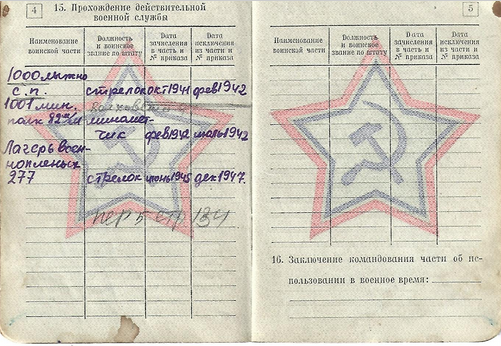 4
15. Прохождение действительной
военной службы
Наименование воинской части
Должность и воинское звание по штату
Дата зачисления в часть и № приказа
Дата исключения из части и № приказа
1000
с.п. стрелок окт 1941 фев 1942
1001 мин.
полк 82 миномет-
чик фев 1942 1942
Лагерь воен-
нопленых
277 стрелок июнь 1945 дек 1947.
5
Наименование воинской части
Должность и воинское звание по штату
Дата зачисления в часть и № приказа
Дата исключения из части и № приказа
16. Заключение командования части об ис-
пользовании в военное время: